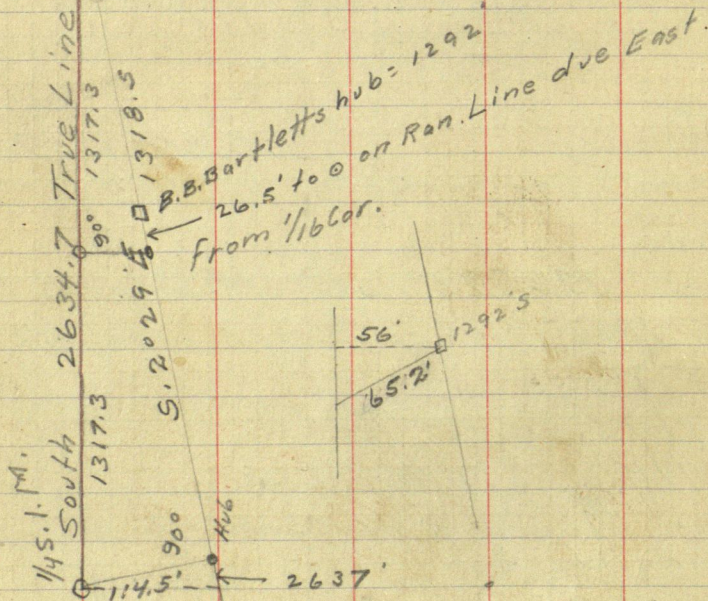 1/4 S.I.M.
South 2634.7 True Line
1317.3
1317.3
90°
1318.5
S. 2° 29' E
B.B. Bartletts hub = 1292'
26.5' to ⊙ on Ran. Line due East
from 1/16 Cor.
56'
65.2'
1292's
90°
Hub
114.5'
2637'